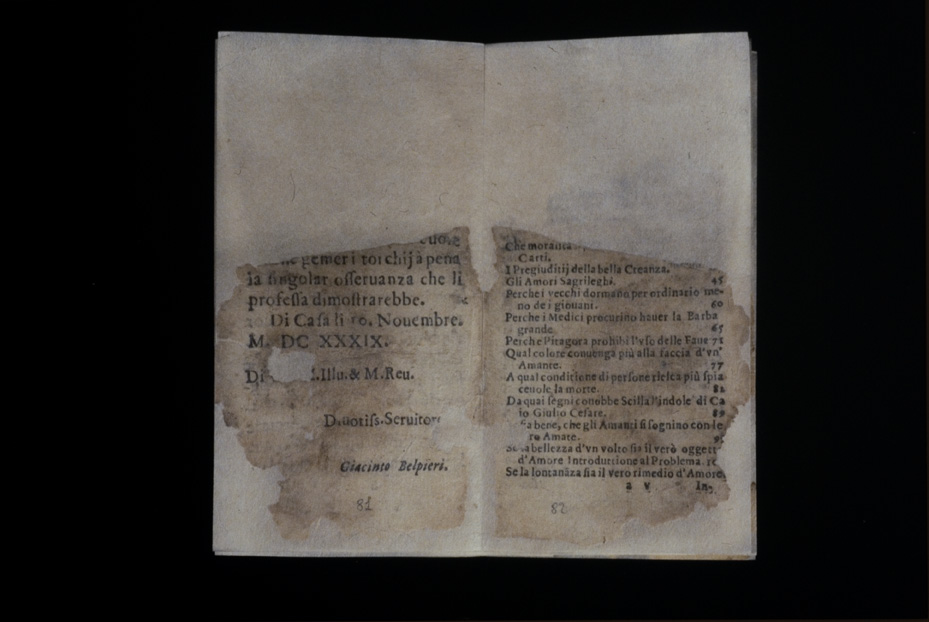 gemer i torchij à pena
la singolar osseruanza che li
professa dimostrarebbe.
Di Casa li 10. Nouembre.
M. DC XXXIX.
Di .Illu. & M.Reu.
Deuotiss. Seruitore
Giacinto Belpieri.
81
Che
Carti.
I Pregiuditij della bella Creanza.
Gli Amori Sagrileghi. 45
Perche i vecchi dormano per ordinario me-
no de i giouani. 60
Perche i Medici procurino hauer la Barba
grande. 65
Perche Pitagora prohibì l'vso delle Faue 72
Qual colore conuenga più alla faccia d'vn'
Amante. 77
A qual conditione di persone riesca più spia
ceuole la morte. 82
Da quai segni conobbe Scilla l'indole di Ca
io Giulio Cesare. 89
bene, che gli Amanti si sognino con le
ro Amate.
bellezza d'vn volto sia il verò oggett
d'Amore Introduttione al Problema.
Se la lontanãza sia il vero rimedio d'Amore.
a v In-
82